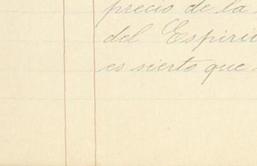 precio de la
del Espiri
es sierto que